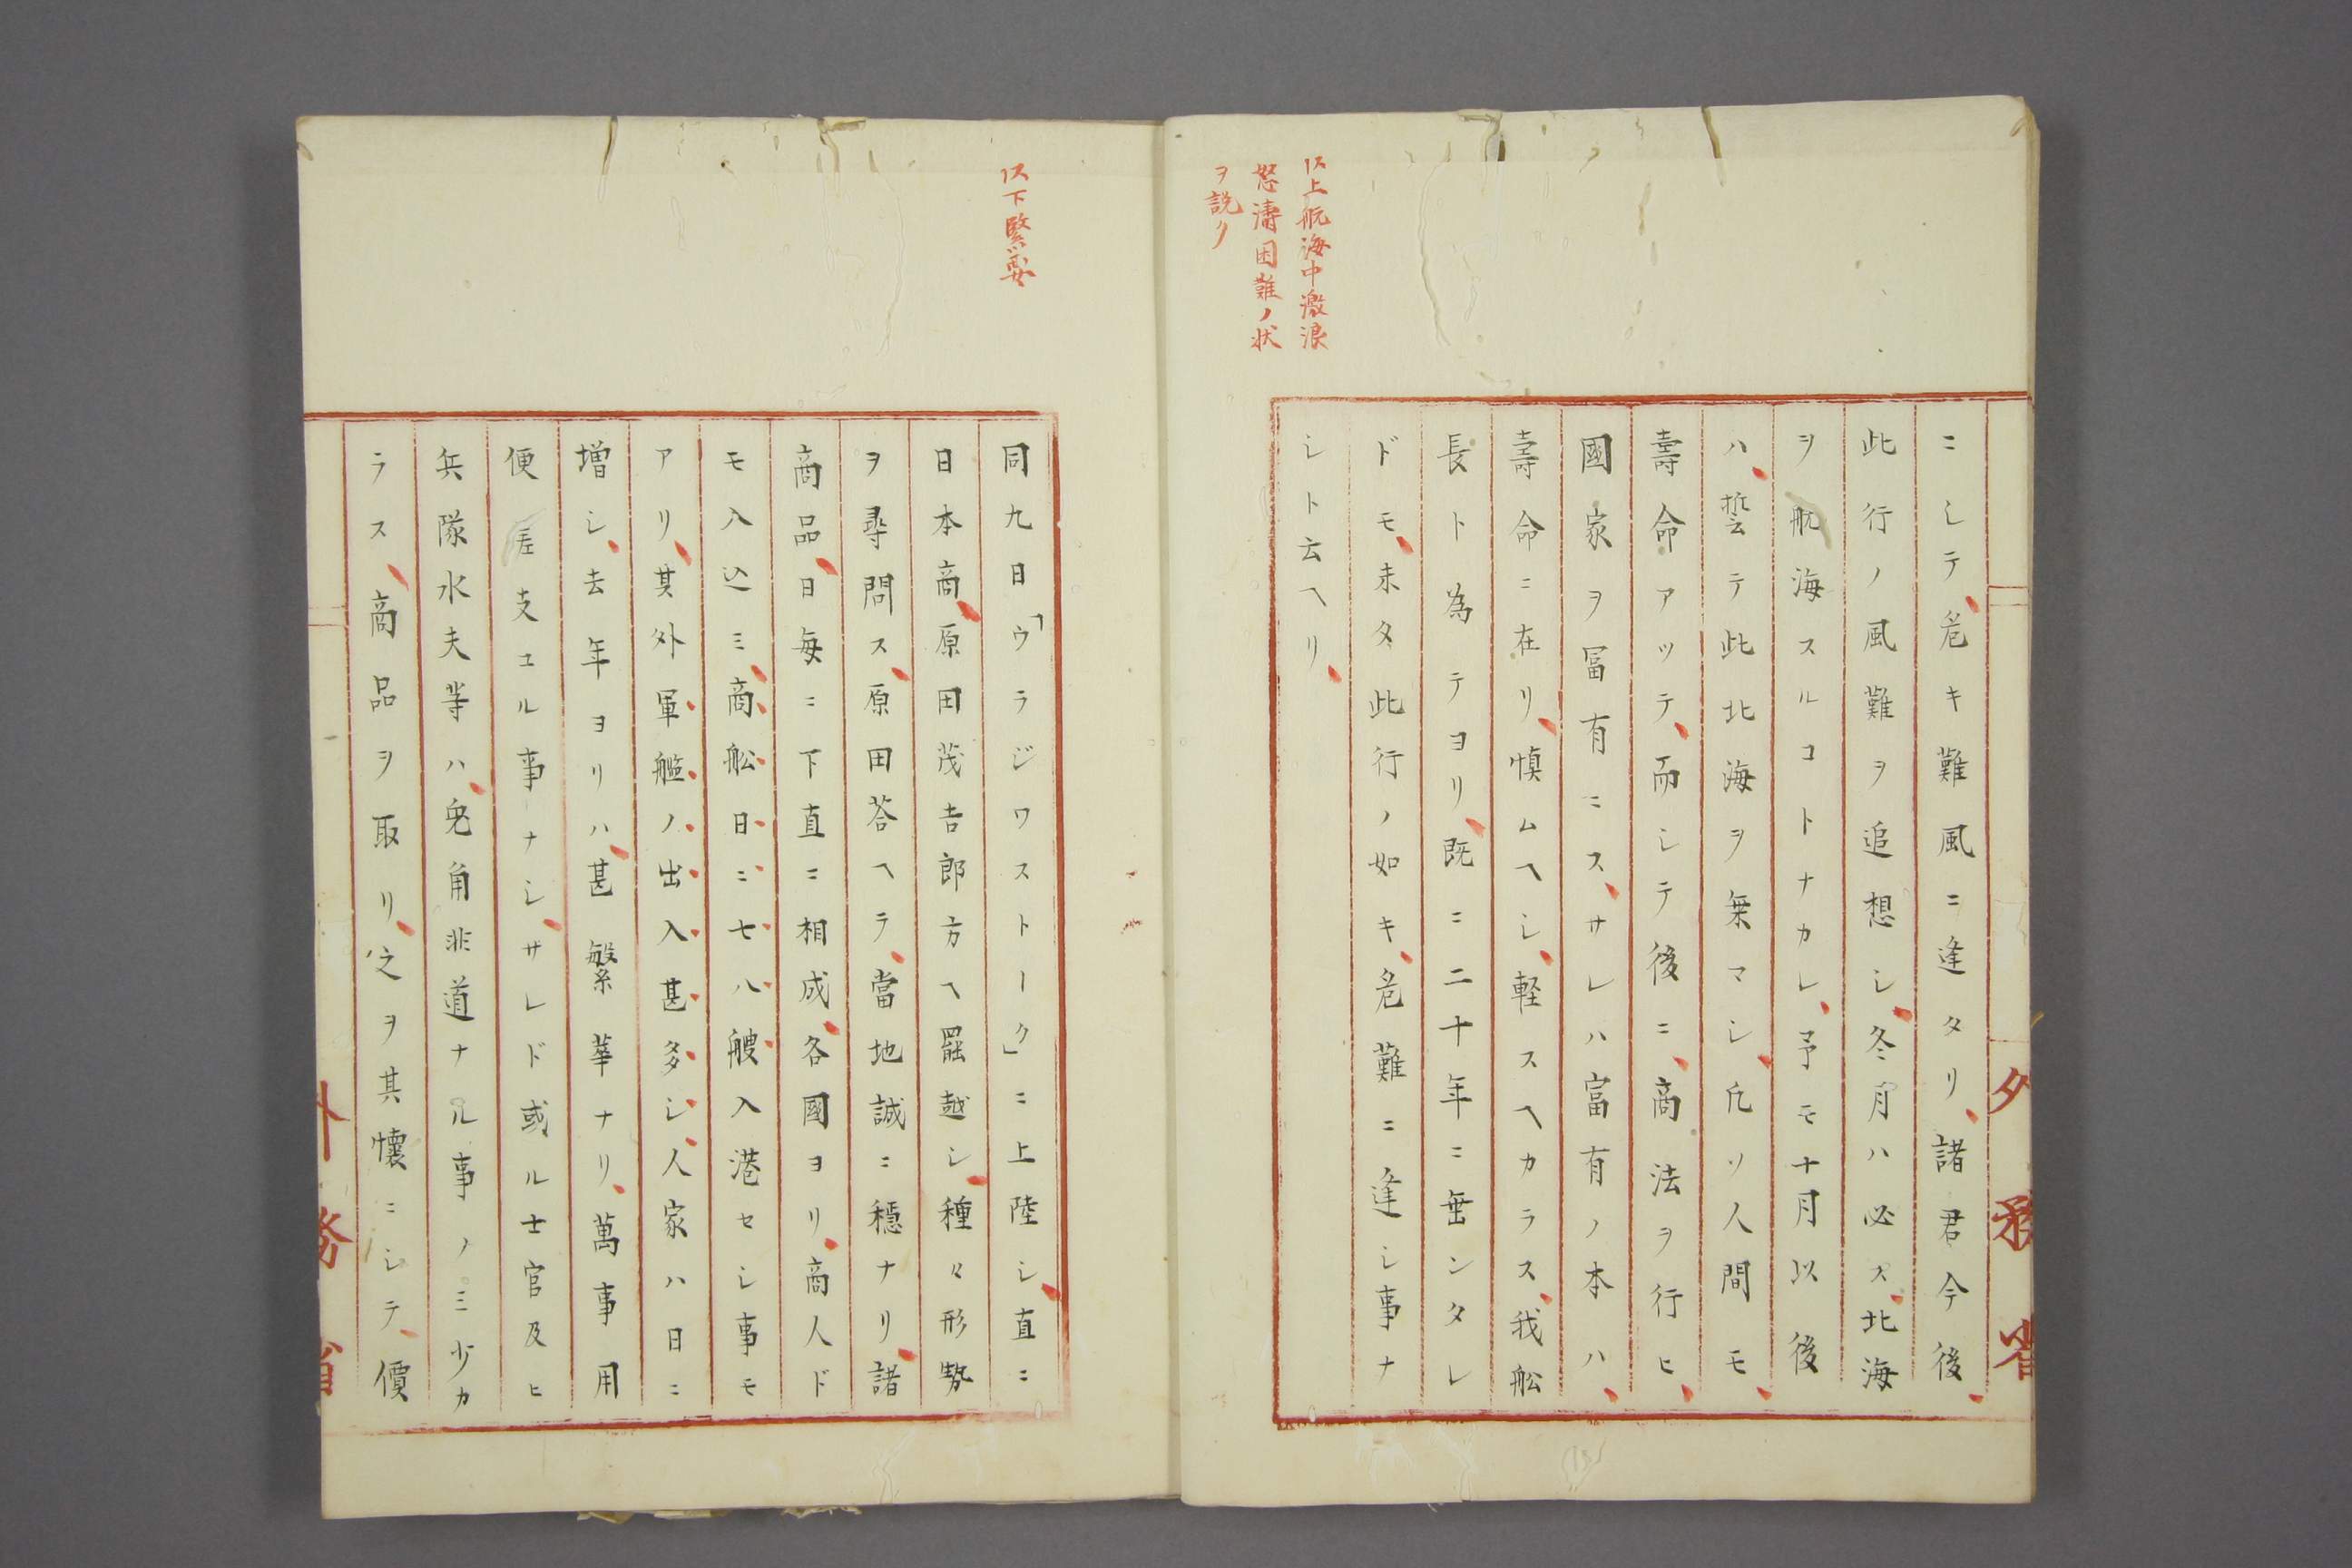 以上航海中激浪
怒濤困難ノ状
ヲ説ク
ニシテ、危キ難風ニ逢タリ、諸君今後、
此行ノ風難ヲ追想シ、冬月ハ必ス、北海
ヲ航海スルコトナカレ、予モ十月以後
ハ、誓テ此北海ヲ乗マシ、凡ソ人間モ、
壽命アツテ、而シテ後ニ、商法ヲ行ヒ、
國家ヲ冨有ニス、サレハ富有ノ本ハ、
壽命ニ在リ、慎ムヘシ、軽スヘカラス、我舩
長ト為テヨリ、既ニ二十年ニ垂ンタレ
ドモ、未タ此行ノ如キ、危難ニ逢シ事ナ
シト云ヘリ、
外務省
以下緊要
同九日「ウラジワストーク」ニ上陸シ、直ニ
日本商、原田茂吉郎方ヘ罷越シ、種々形勢
ヲ尋問ス、原田荅ヘラ、當地誠ニ穏ナリ、諸
商品、日毎ニ下直ニ相成、各國ヨリ、商人ド
モ入込ミ、商舩日ニ七八艘入港セシ事モ
アリ、其外軍艦ノ出入甚多シ、人家ハ日ニ
増シ、去年ヨリハ、甚繁華ナリ、萬事用
便差支エル事ナシ、サレド或ル士官及ヒ
兵隊水夫等ハ、兔角非道ナル事ノミ少カ
ラス、商品ヲ取リ、之ヲ其懐ニシテ、價
外務省